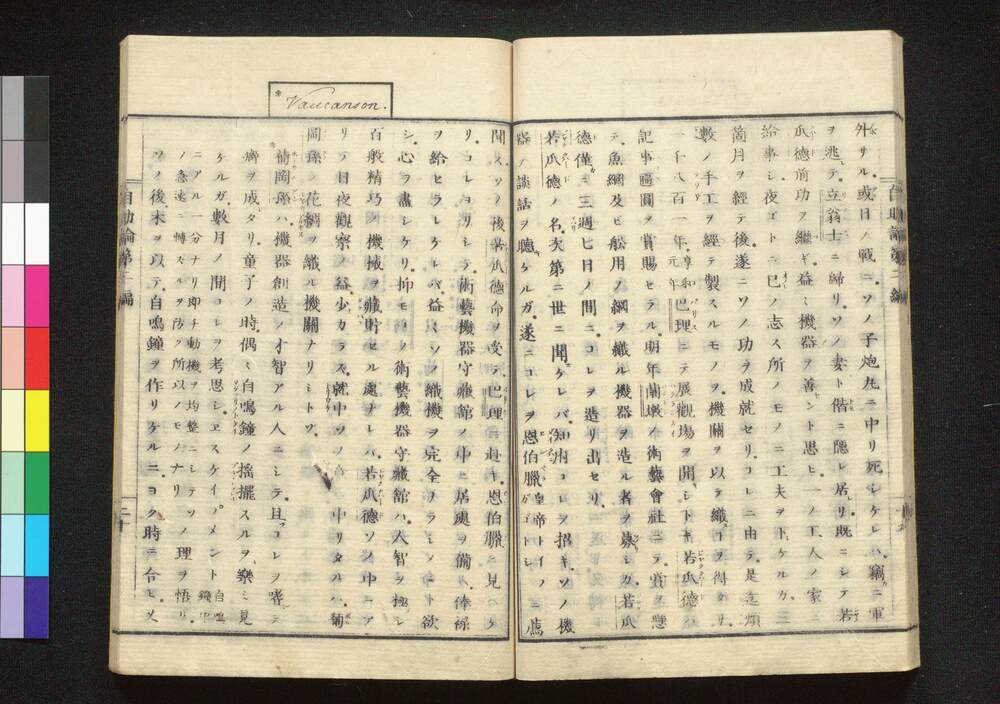 外サル或日ノ戰ニソノ子炮丸ニ中リ死シケレバ竊ニ軍
ヲ逃テ立翁士ニ歸リソノ妻ト偕ニ隱レ居リ既ニシテ若
瓜德前功ヲ繼ギ益ミ機器ヲ善セント思ヒ一ノ工人ノ家ニ
給事シ夜ゴトニ己ノ志ス所ノモノニ工夫ヲ下ケルガ三
箇月ヲ經テ後遂ニソノ功ヲ成就セリコレニ由テ是迄煩
數ノ手工ヲ經テ製スルモノヲ機關ヲ以テ織コヲ得タリ
一千八百一年享和元年巴理ニテ展觀場ヲ開シトキ若瓜德
記事匾圓ヲ賞賜セラル明年蘭墩ノ術藝會社ニテ賞ヲ懸
テ魚網及ビ舩用ノ網ヲ織ル機器ヲ造ル者ヲ募シガ若瓜
德僅ニ三週七日ノ間ニコレヲ造リ出セリ
若瓜德ノ名次第ニ世ニ聞ケレバ知府コレヲ招キソノ機
器ノ談話ヲ聽ケルガ遂ニコレヲ恩伯臘皇帝トイフガゴトシニ薦
聞
*Vaucanson.
ソノ後若瓜德命ヲ受テ巴理ニ赴キ恩伯臘ニ見ヘケ
リコレヨリシテ術藝機器守藏館ノ中ニ居處ヲ備ヘ俸祿
ヲ給ヒラレケレバ益ミソノ織機ヲ完全ナラシメント欲
シ心ヲ盡シケリ抑モコノ術藝機器守藏館ハ人智ヲ極
百般精巧ノ機械ヲ藏貯セル處ナレバ若瓜德ソノ中ニア
リテ日夜觀察ノ益少カラズ就中ソノ中リタルハ葡
岡孫ノ花綢ヲ織ル機關ナリシトゾ
葡岡孫ハ機器創造ノ才智アル人ニシテ且コレヲ嗜テ
癖ヲ成タリ童子ノ時偶ミ自鳴鐘ノ搖擺スルヲ樂ミ見
ケルガ數月ノ間コレヲ考思シエスケイプメント自鳴鐘中
ニアル一分ナリ即チ動機ヲ均整ニシテソノ急速ニ轉スルヲ防グ所以ノモノナリノ理ヲ悟リ
ソノ後木ヲ以テ自鳴鐘ヲ作リケルニヨク時ニ合ヒ又
自助論第二編
自助論第二編
二十